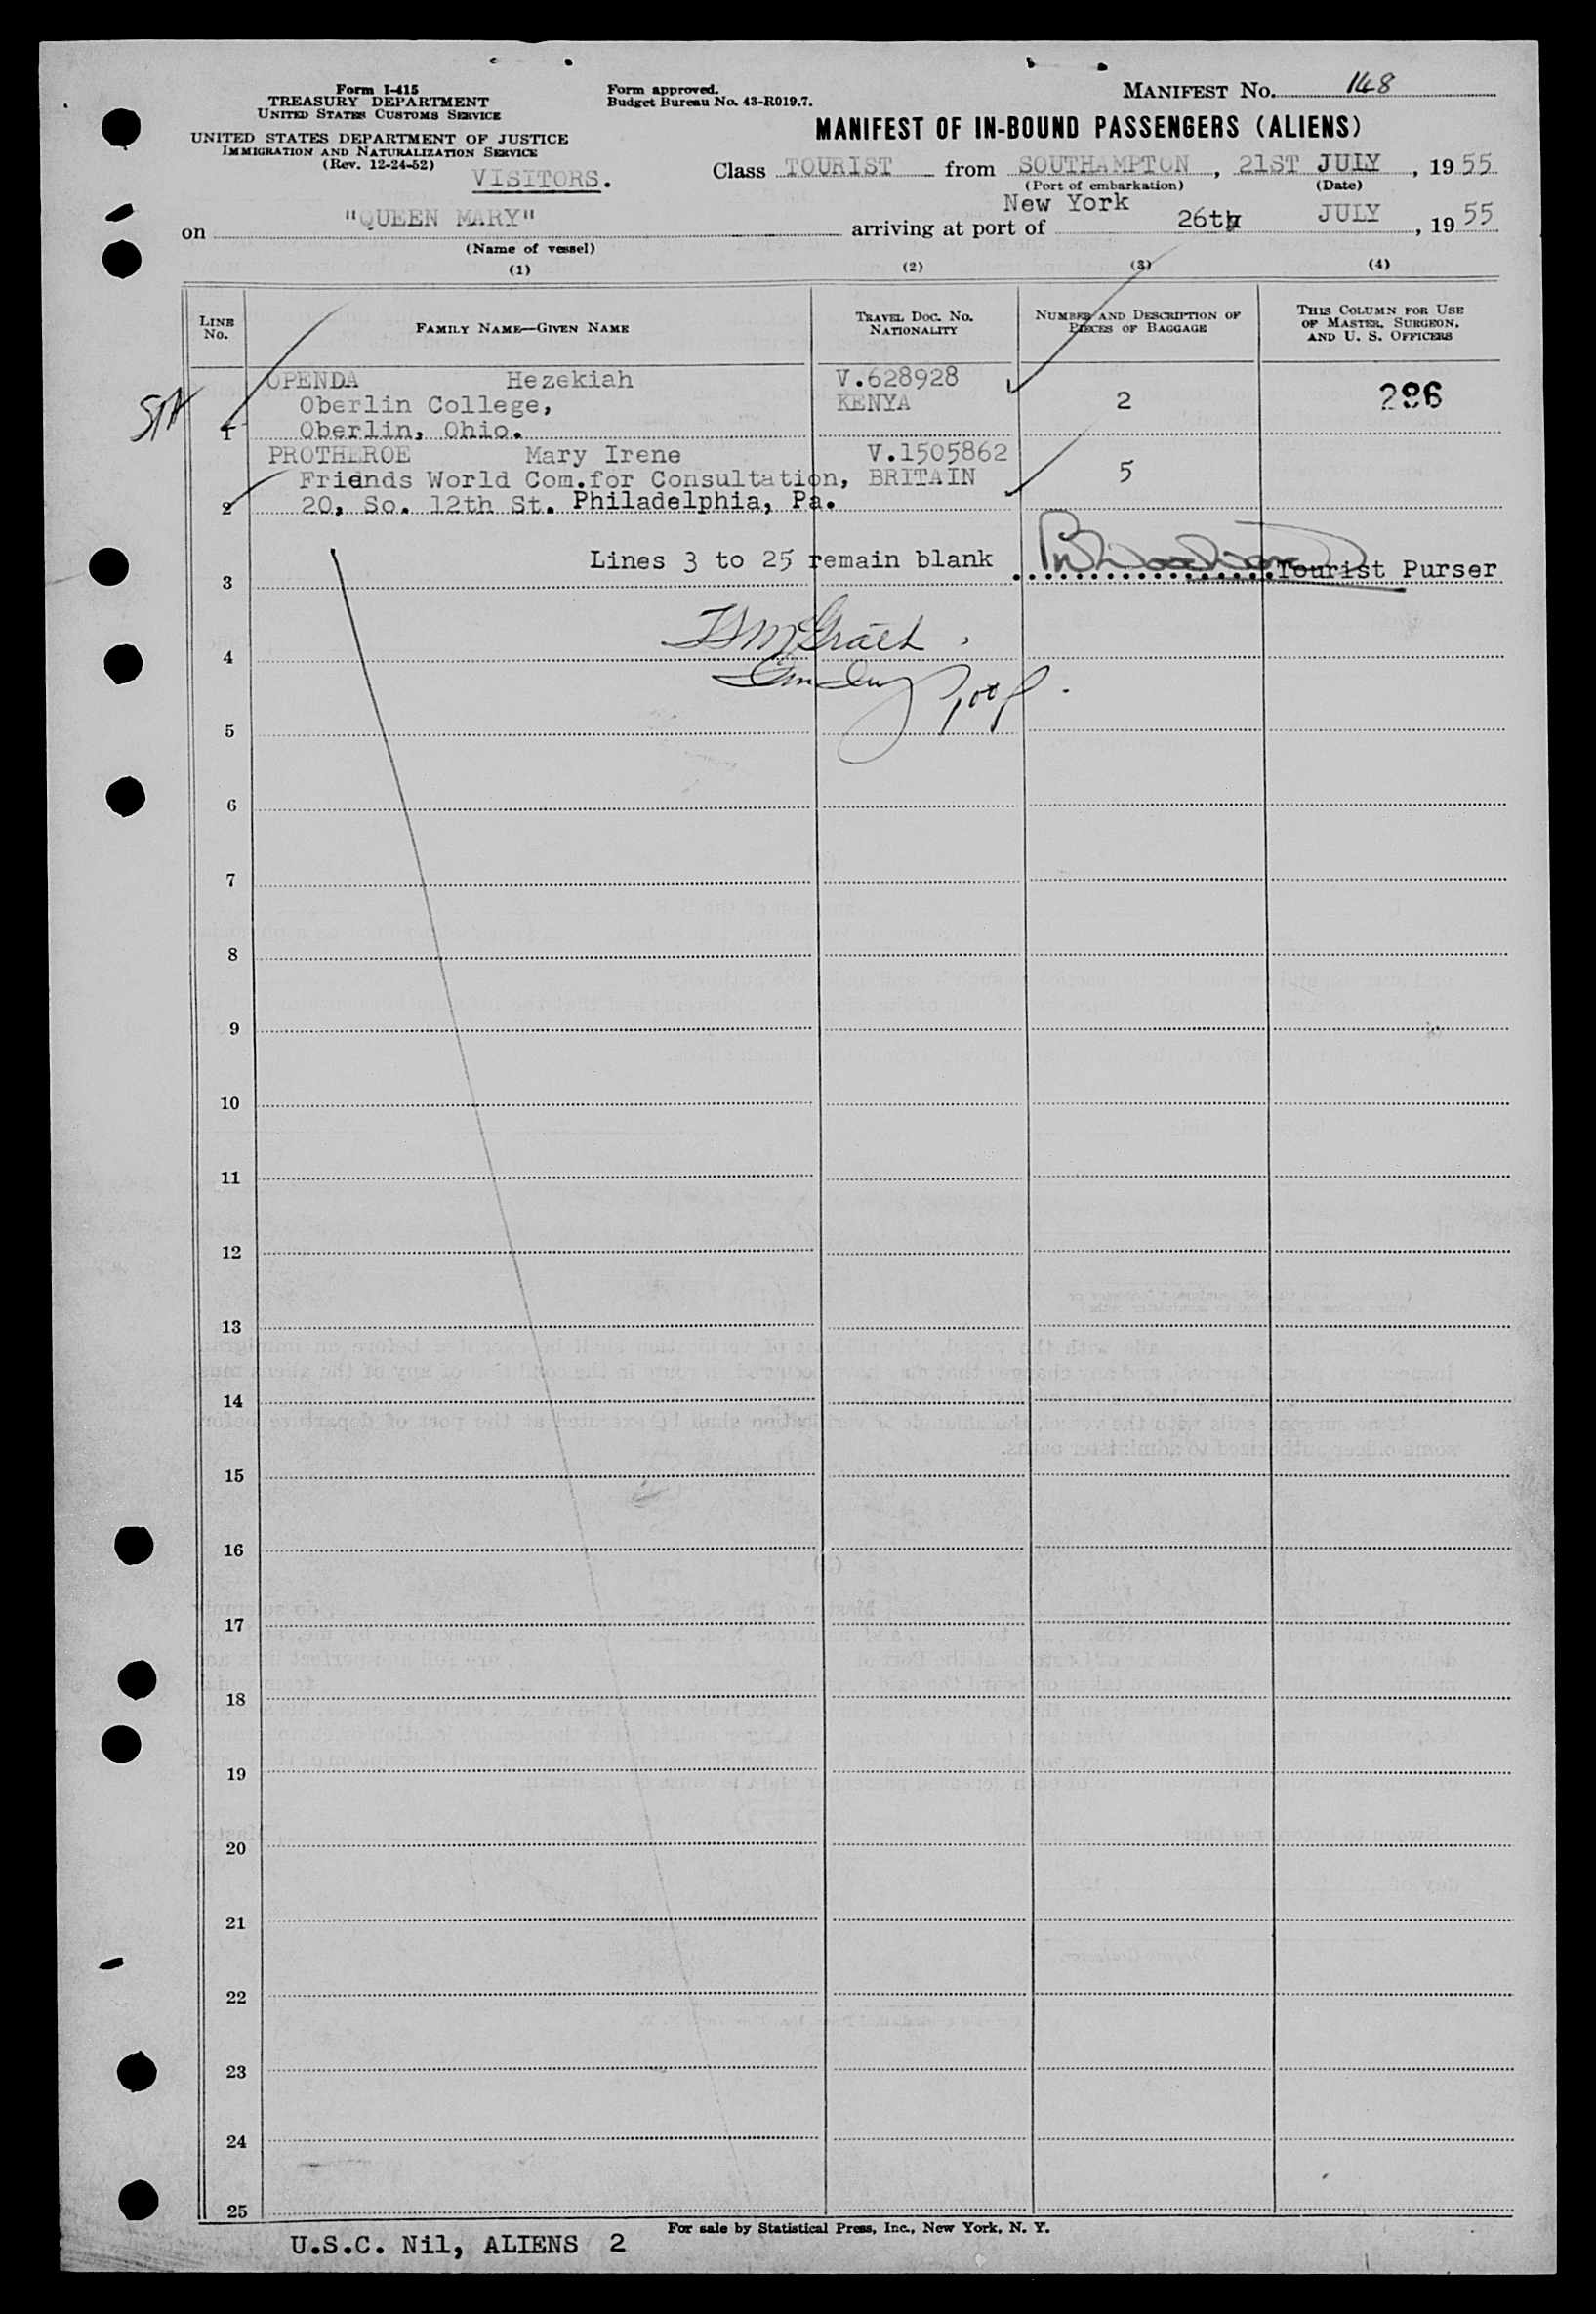 Form I-415
TREASURY DEPARTMENT
UNITED STATES CUSTOMS SERVICE
UNITED STATES DEPARTMENT OF JUSTICE
IMMIGRATION AND NATURALIZATION SERVICE
(Rev. 12-24-52)
VISITORS.
Form approved.
Budget Bureau No. 43-R019.7.
MANIFEST NO. 148
MANIFEST OF IN-BOUND PASSENGERS (ALIENS)
Class TOURIST from SOUTHAMPTON, 21ST JULY, 1955
(Port of embarkation) (Date)
on "QUEEN MARY" arriving at port of New York 26th JULY, 1955
(Name of vessel)
(1) (2) (3) (4)
LINE NO. FAMILY NAME—GIVEN NAME TRAVEL DOC. NO. NATIONALITY NUMBER AND DESCRIPTION OF PIECES OF BAGGAGE THIS COLUMN FOR USE OF MASTER, SURGEON, AND U. S. OFFICERS
OPENDA Hezekiah V.628928
Oberlin College, KENYA 2 286
1 Oberlin, Ohio.
PROTHEROE Mary Irene V.1505862
Friends World Com.for Consultation, BRITAIN 5
2 20, So. 12th St. Philadelphia, Pa.
Lines 3 to 25 remain blank Tourist Purser
3
4
5
6
7
8
9
10
11
12
13
14
15
16
17
18
19
20
21
22
23
24
25
For sale by Statistical Press, Inc., New York, N. Y.
U.S.C. Nil, ALIENS 2